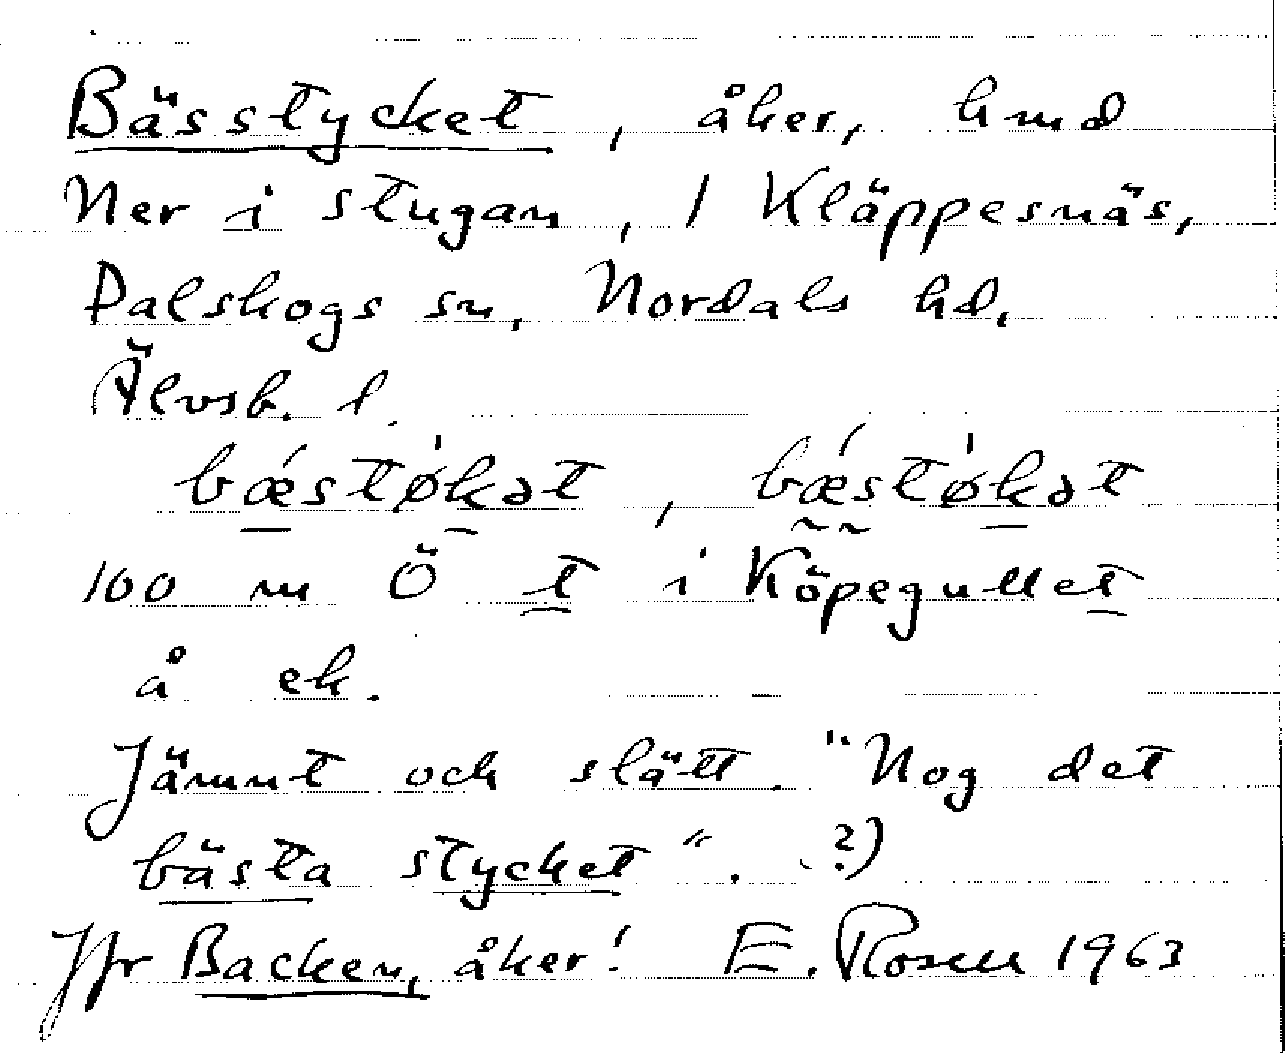 Bässtycket, åker, hmd
Ner i stugan, 1 Kläppesnäs,
Dalskogs sn, Nordals hd,
Älvsb. l.
bǽstø̀kət, bǽstø̀kət
100 m Ö t i Köpegullet
å ek.
Jämnt och slätt. "Nog det
bästa stycket". (?)
Jfr Backen, åker! E. Rosell 1963